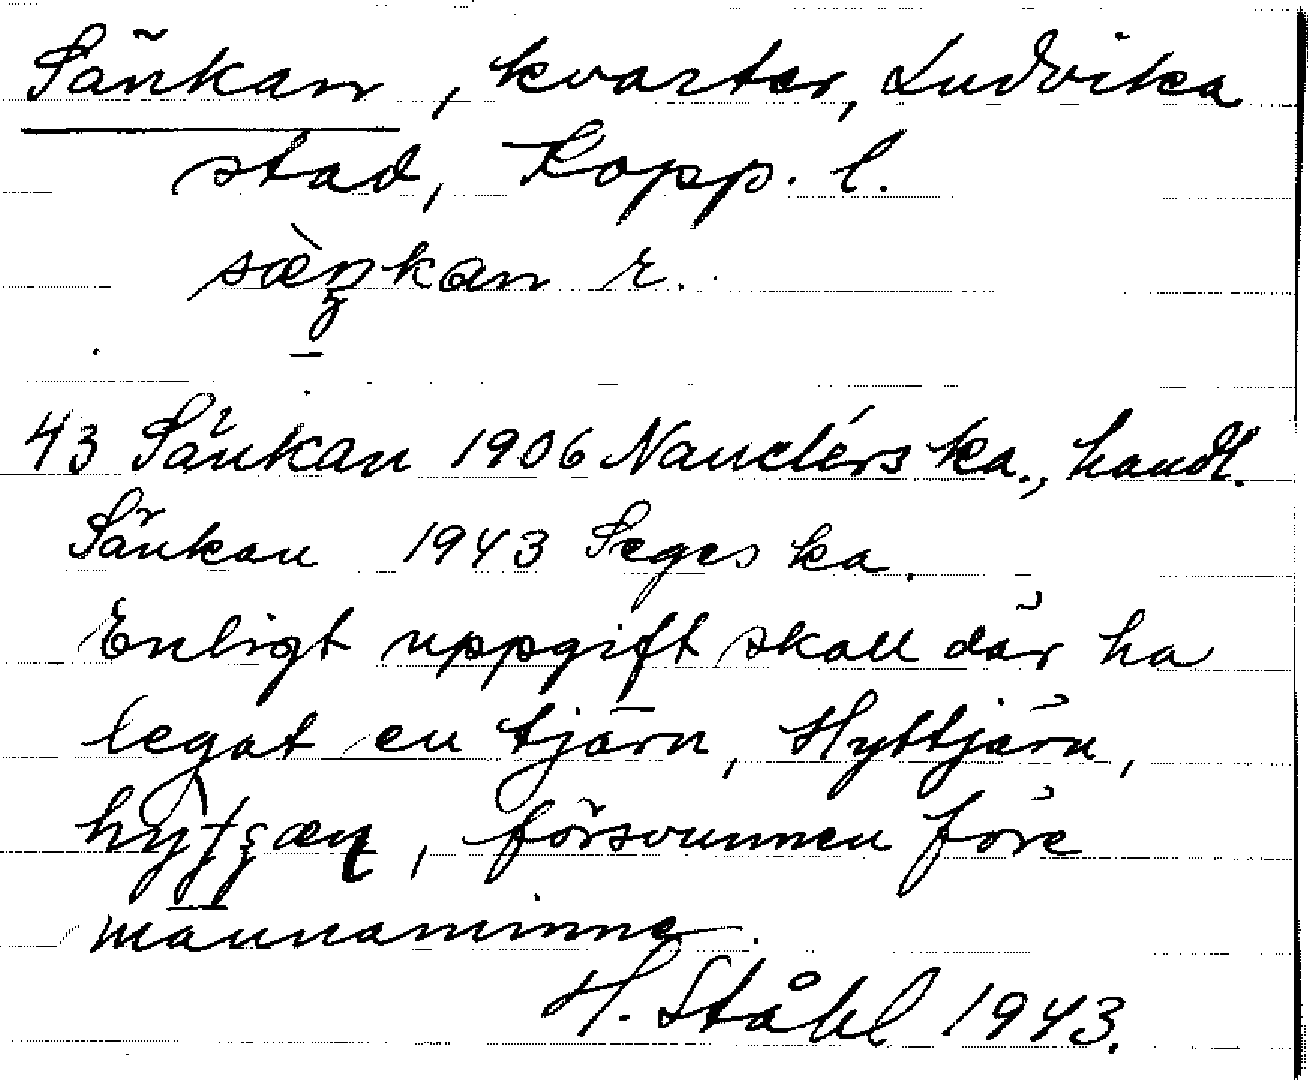 Sänkan, kvarter, Ludvika
stad, Kopp. l.
43 Sänkan 1906 Nauclérs ka., handl.
Sänkan 1943 Seges ka.
Enligt uppgift skall där ha
legat en tjärn, Hyttjärn,
försvunnen före
mannaminne.
H. Ståhl 1943.